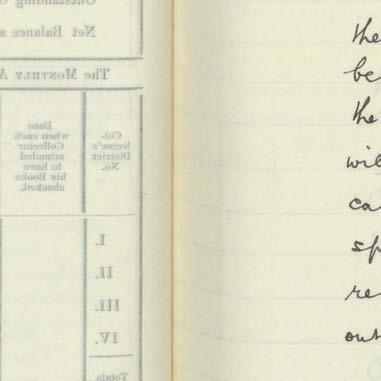 Outstanding
Net Balance a
The MONTHLY A
Col-
lector's
District
No.
Date
when each
Collector
attended
to have
his Books
checked.
I.
II.
III.
IV.
Totals
the
be
the
wil
ca
sp
re
out